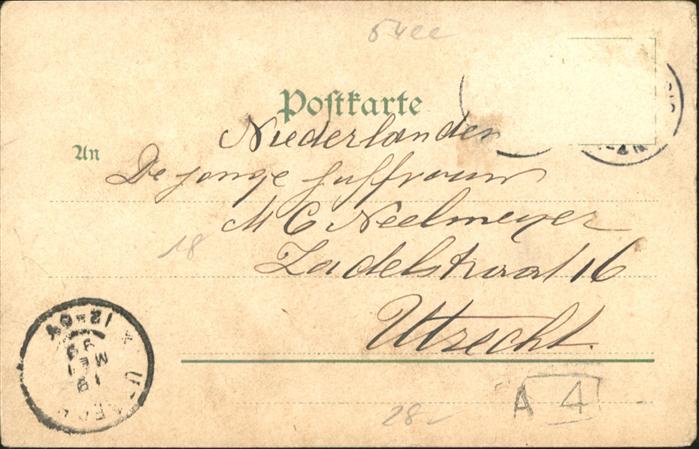 54ee
Postkarte
Niederlanden
An
De jonge Juffrouw
M C Neelmeyer
18
Zadelstraat 16
Utrecht.
12-
18
MEI
98
28-
A 4